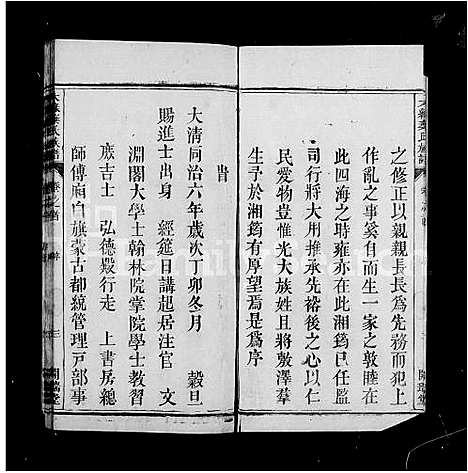 之修正以親親長長為先務而犯上
作亂之事奚自而生一家之敦睦在
此四海之時雍亦在此湘筠已任監
司行將大用推承先裕後之心以仁
民愛物豈惟光大族姓且將敷澤羣
生予於湘筠有厚望焉是為序
旹
大清同治六年歲次丁卯冬月 穀旦
賜進士出身 經筵日講起居注官 文
淵閣大學士翰林院掌院學士教習
庶吉士 弘德殿行走 上書房總
師傅廂白旗蒙古都統管理戶部事